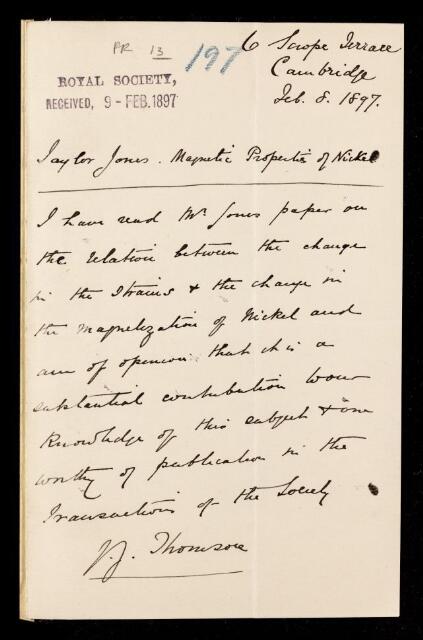 RR 13
197
6 Scrope Terrace
Cambridge
Feb. 8. 1897.
ROYAL SOCIETY,
RECEIVED, 9 - FEB. 1897
Taylor Jones. Magnetic Properties of Nickel
I have read Mr Jones paper on
the relation between the change
in the strains & the change in
the magnetization of Nickel and
am of opinion that it is a
substantial contribution to our
knowledge of this subject & one
worthy of publication in the
Transactions of the Society
J.J. Thomson